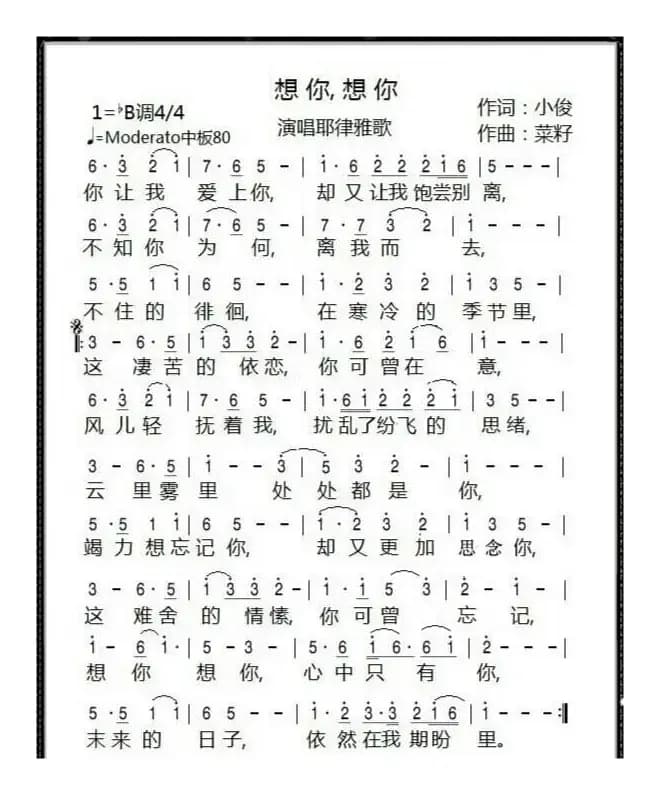 想你,想你
1=♭B调4/4
作词：小俊
♩=Moderato中板80
演唱耶律雅歌
作曲：菜籽
6· 3 2 1 | 7· 6 5 - | 1· 6 2 2 2 1 6 | 5 - - - |
你让我 爱上你, 却又让我饱尝别离,
6· 3 2 1 | 7· 6 5 - | 7· 7 3 2 | 1 - - - |
不知你 为何, 离我而 去,
5· 5 1 1 | 6 5 - - | 1· 2 3 2 | 1 3 5 - |
不住的 徘徊, 在寒冷的 季节里,
𝄋
‖: 3 - 6· 5 | 1 3 3 2 - | 1· 6 2 1 6 | 1 - - - |
这 凄苦的依恋, 你可曾在 意,
6· 3 2 1 | 7· 6 5 - | 1· 6 1 2 2 2 1 | 3 5 - - |
风儿轻 抚着我, 扰乱了纷飞的 思绪,
3 - 6· 5 | 1 - - 3 | 5 3 2 - | 1 - - - |
云 里雾里 处处都是 你,
5· 5 1 1 | 6 5 - - | 1· 2 3 2 | 1 3 5 - |
竭力想忘记你, 却又更加 思念你,
3 - 6· 5 | 1 3 3 2 - | 1· 1 5 3 | 2 - 1 - |
这 难舍的情愫, 你可曾 忘记,
1 - 6 1· | 5 - 3 - | 5· 6 1 6· 6 1 | 2 - - - |
想 你 想 你, 心中只有 你,
5· 5 1 1 | 6 5 - - | 1· 2 3· 3 2 1 6 | 1 - - - :‖
末来的 日子, 依然在我期盼 里。